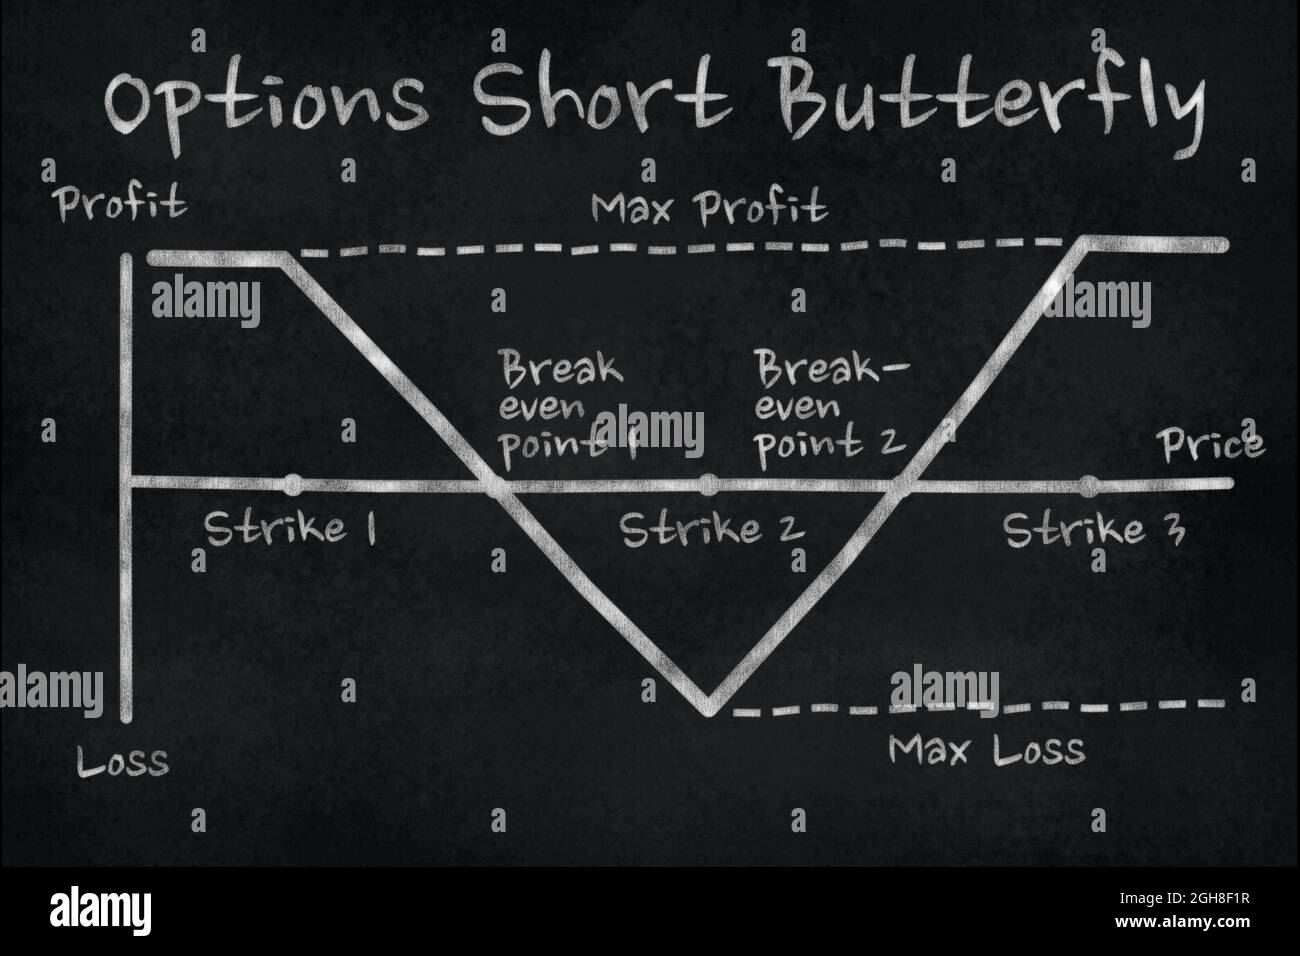 Options Short Butterfly
Profit
Max Profit
Break
even
point 1
Break-
even
point 2
Price
Strike 1
Strike 2
Strike 3
Max Loss
Loss
a a a a
a a a a a
alamy a a alamy
a a alamy a
a a a a
alamy a a alamy a
a a a a
alamy
Image ID: 2GH8F1R
www.alamy.com